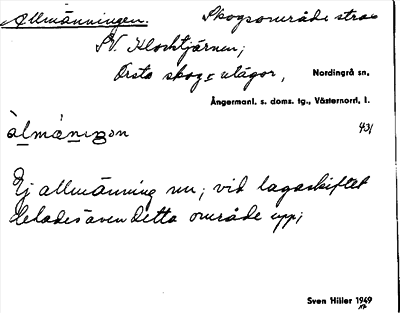 Allmänningen. Skogsområde strax
SV. Klocktjärnen,
Orsta skog c utägor, Nordingrå sn,
Ångermanl. s. doms. tg., Västernorrl. l.
431
Ej allmänning nu; vid lagaskiftet
delades även detta område upp;
Sven Hiller 1949